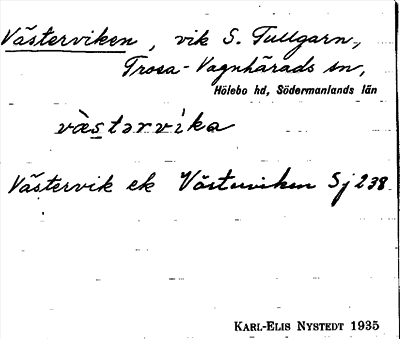 Västerviken, vik S. Tullgarn,
Trosa-Vagnhärads sn,
Hölebo hd, Södermanlands län
vàstərvìka
Västervik ek Västerviken Sj 238
KARL-ELIS NYSTEDT 1935